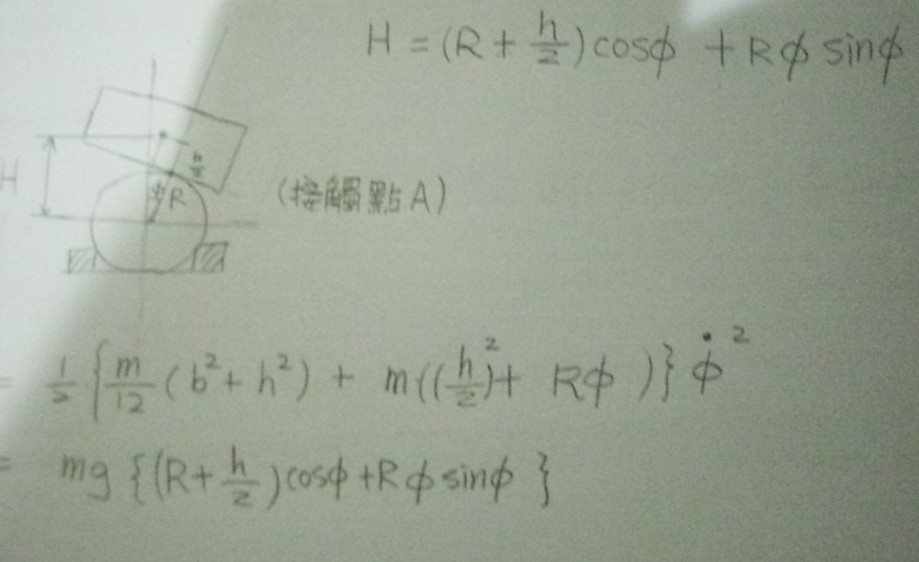 H = (R + h/2)cosϕ + Rϕ sinϕ
H
h/2
R
(接觸點A)
= 1/2 {m/12 (b² + h²) + m((h/2)² + Rϕ )} ϕ̇ ²
= mg {(R + h/2)cosϕ + Rϕ sinϕ }